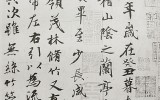 年歲在癸丑暮春
稽山陰之蘭亭
至少長咸
領茂林脩竹又
帶左右引以為流
次雖無絲竹